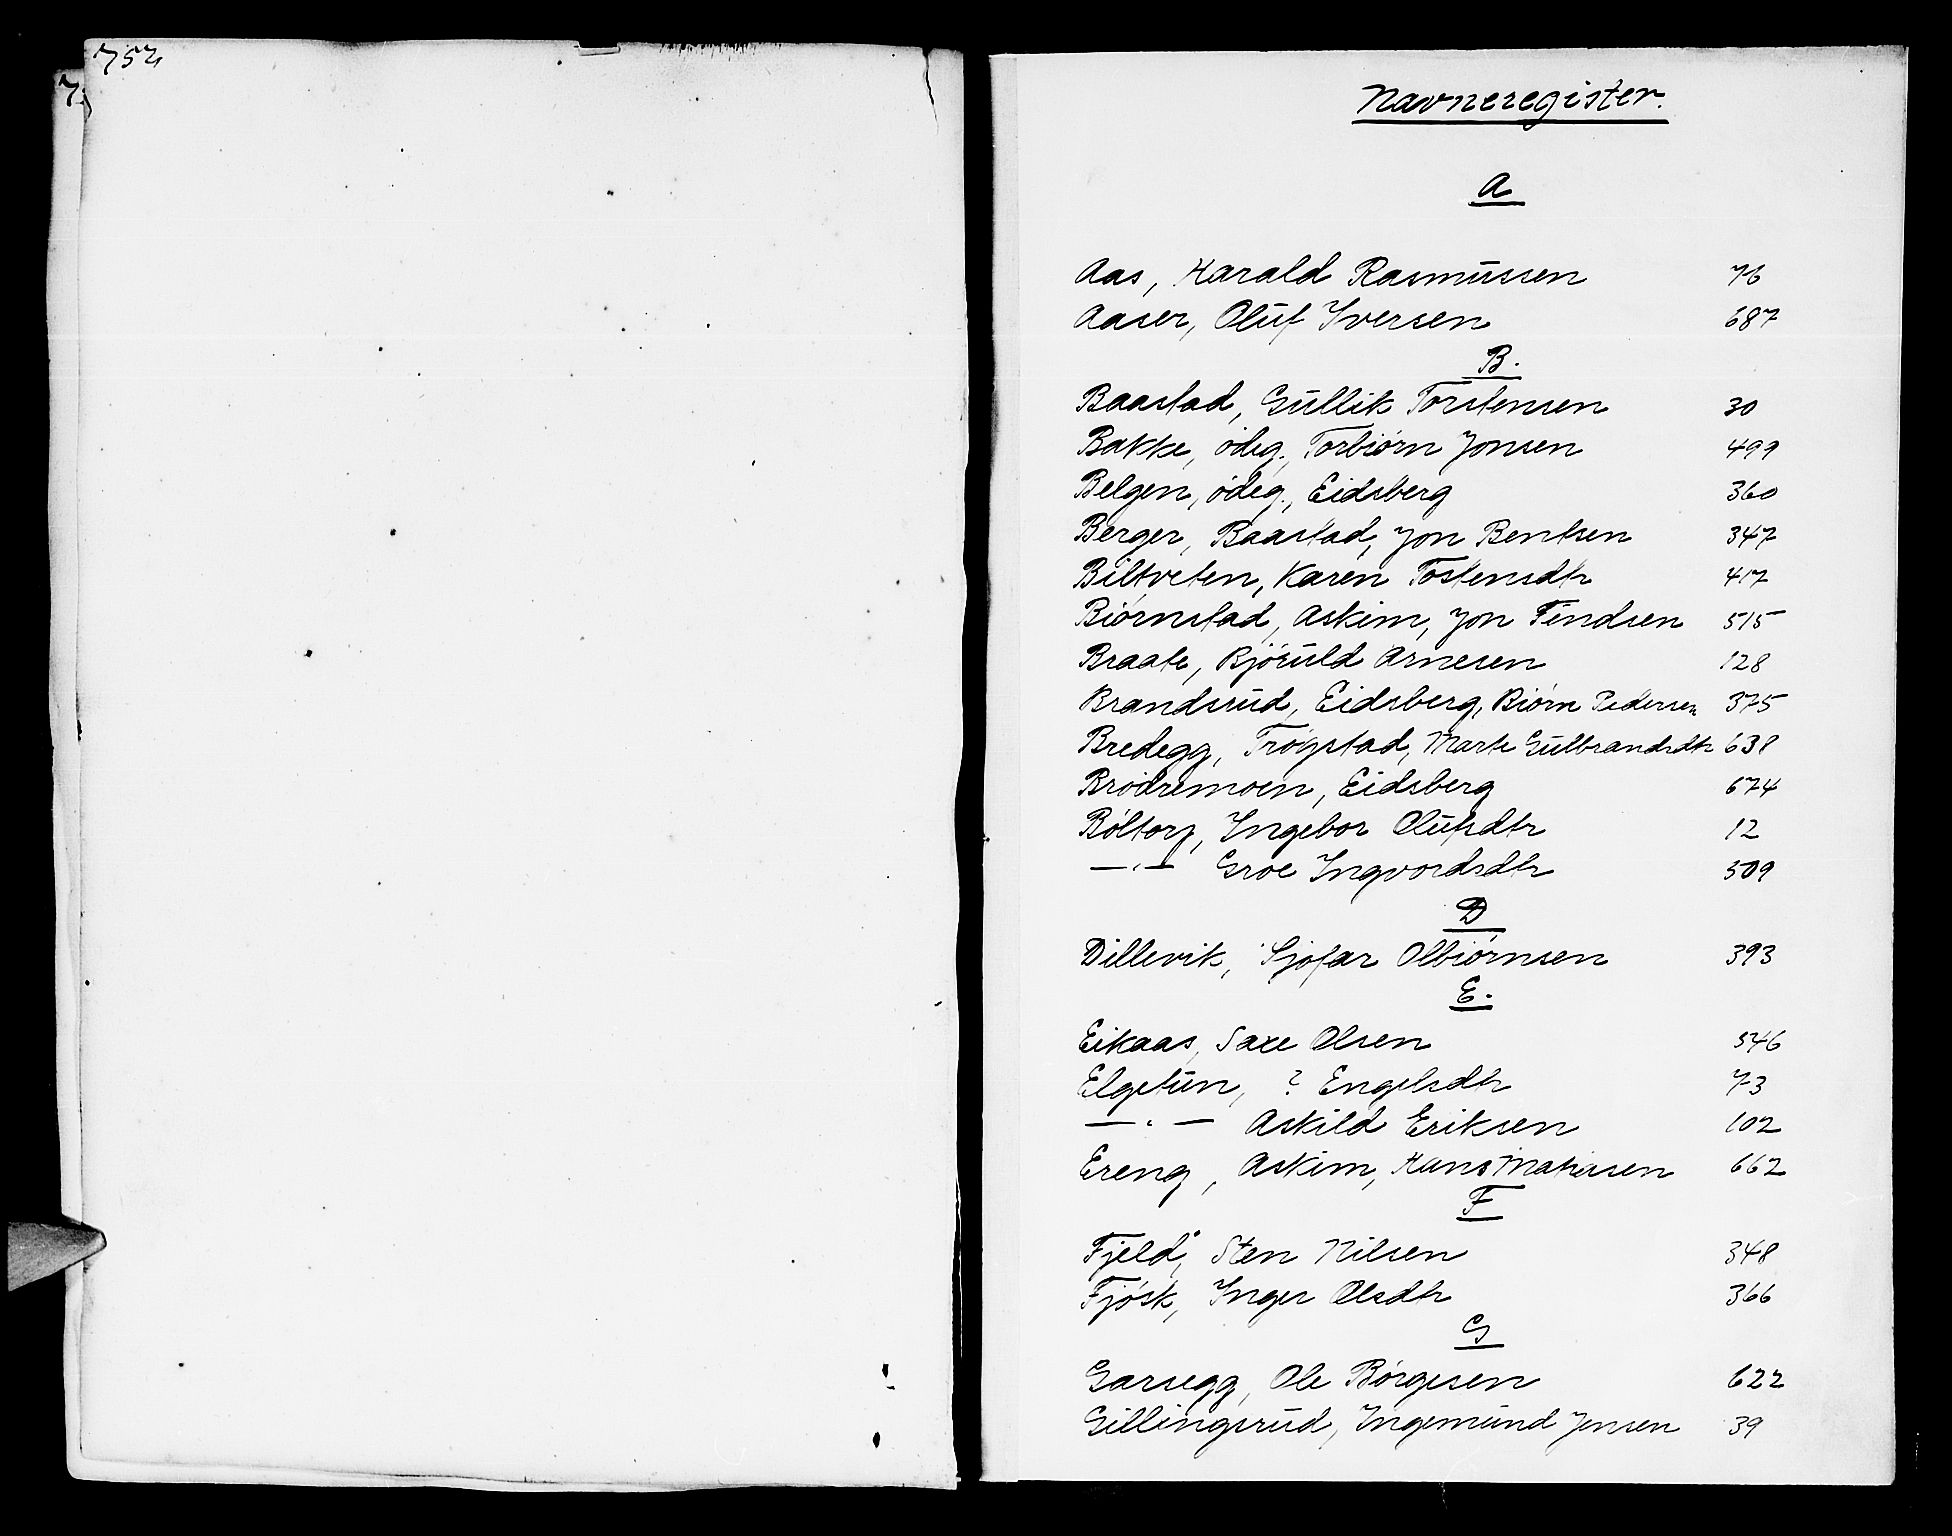 752
7
Navneregister.
A
Aas, Harald Rasmussen 76
Aaser, Oluf Iversen 687
B.
Baastad, Gullik Torstensen 30
Bakke, ödeg., Torbiørn Jonsen 499
Belgen, ödeg., Eidsberg 360
Berger, Baastad, Jon Bentsen 347
Biltveten, Karen Tostensdtr 417
Biørnstad, Askim, Jon Findsen 515
Braate, Bjøruld Arnesen 128
Brandsrud, Eidsberg, Biørn Pedersen 375
Bredegg, Trøgstad, Marte Gulbrandsdtr 638
Brødremoen, Eidsberg 674
Bøltorp, Ingebor Olufsdtr 12
—〃— Groe Ingvordsdtr 509
D
Dillevik, Sjøfar Olbiørnsen 393
E.
Eikaas, Saxe Olsen 546
Elgetun, ? Engelsdtr 73
—〃— Askild Eriksen 102
Ereng, Askim, Hans Matiasen 662
F
Fjeld, Sten Nilsen 348
Fjøsk, Inger Olsdtr 366
G
Garsegg, Ole Børgesen 622
Gillingsrud, Ingemund Jensen 39